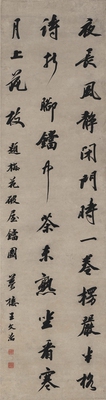 夜長風靜閉門時一卷楞嚴半格
詩折腳鐺中茶未熟坐看寒
月上花枝 題梅花破屋鐺圖 夢樓王文治